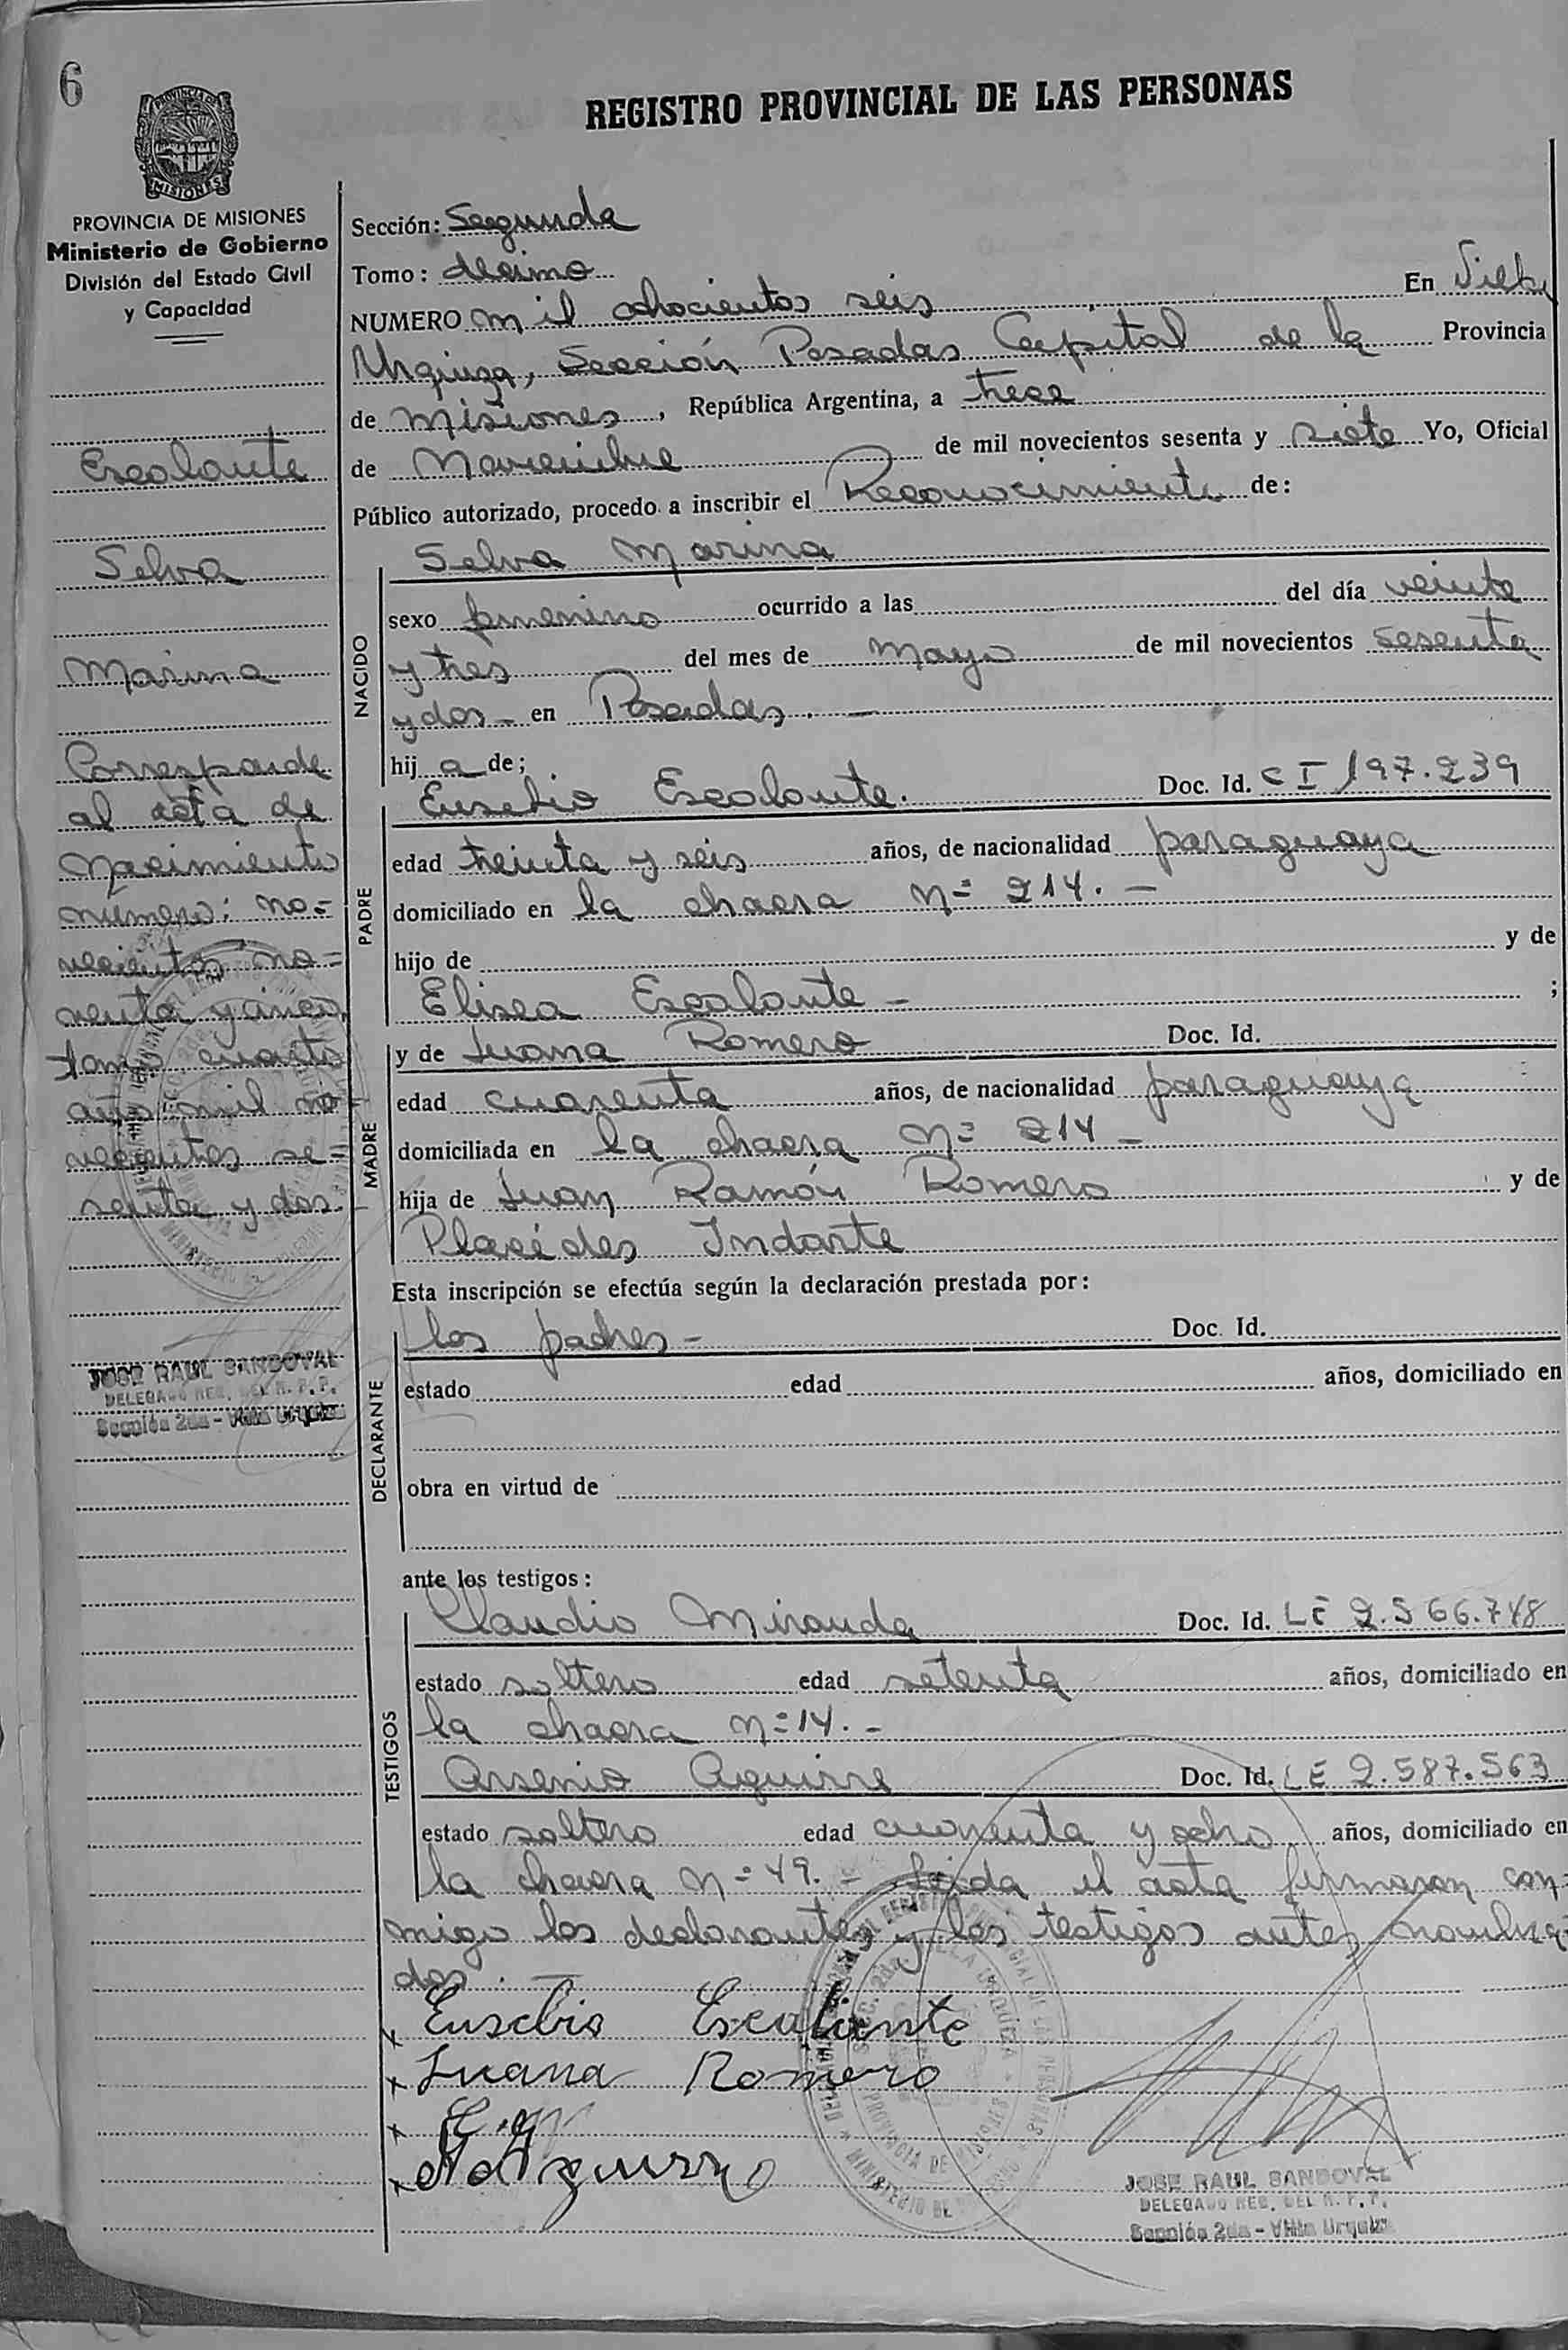 6
REGISTRO PROVINCIAL DE LAS PERSONAS
PROVINCIA DE MISIONES
MISIONES
PROVINCIA DE MISIONES
Ministerio de Gobierno
División del Estado Civil
y Capacidad
Escalante
Selva
Marina
Corresponde
al acta de
Nacimiento
número: no=
vecientos no=
venta y cinco,
tomo cuarto
año mil no=
vecientos se=
senta y dos.-
JOSE RAUL SANDOVAL
DELEGADO REG. DEL R. P. P.
Sección 2da - Villa Urquiza
Sección: Segunda
Tomo: decimo
NUMERO mil ochocientos seis En Villa
Urquiza, Sección Posadas Capital de la Provincia
de Misiones, República Argentina, a trece
de Noviembre de mil novecientos sesenta y siete Yo, Oficial
Público autorizado, procedo a inscribir el Reconocimiento de:
Selva Marina
NACIDO
sexo femenino ocurrido a las del día veinte
y tres del mes de Mayo de mil novecientos sesenta
y dos - en Posadas. -
hij a de;
Eusebio Escalante. Doc. Id. C I 197.239
PADRE
edad treinta y seis años, de nacionalidad paraguaya
domiciliado en la chacra Nº 214. -
hijo de y de
Elisea Escalante - ;
y de Juana Romero Doc. Id.
MADRE
edad cuarenta años, de nacionalidad paraguaya
domiciliada en la chacra Nº 214 -
hija de Juan Ramón Romero y de
Placides Indarte
Esta inscripción se efectúa según la declaración prestada por:
los padres - Doc. Id.
DECLARANTE
estado edad años, domiciliado en
obra en virtud de
ante los testigos:
Claudio Miranda Doc. Id. LE 2.566.748
TESTIGOS
estado soltero edad setenta años, domiciliado en
la chacra Nº 14. -
Arsenio Aguirre Doc. Id. LE 2.587.563
estado soltero edad cuarenta y ocho años, domiciliado en
la chacra Nº 49. - Leida el acta firmaron con=
migo los declarantes y los testigos antes nombra=
dos. -
x Eusebio Escalante
x Juana Romero
x
x
JOSE RAUL SANDOVAL
DELEGADO REG. DEL R. P. P.
Sección 2da - Villa Urquiza